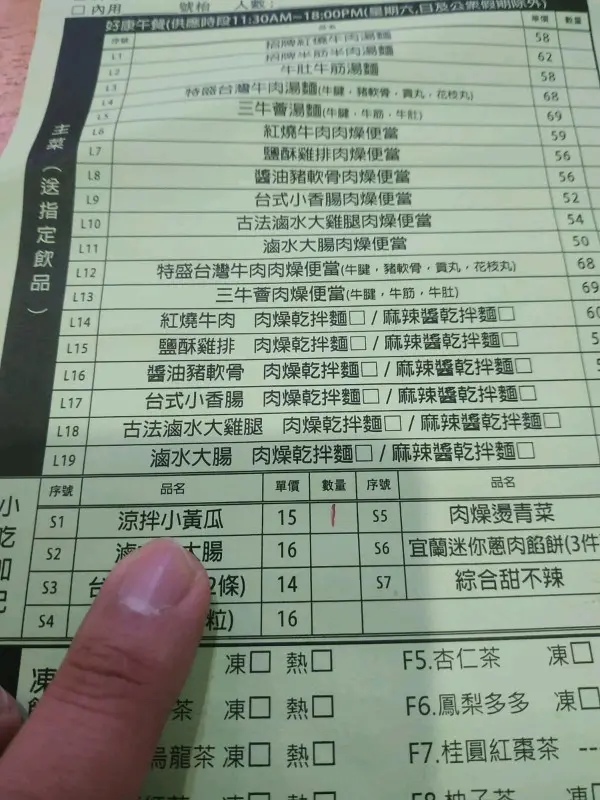 □ 內用 號枱 人數：
好康午餐(供應時段11:30AM~18:00PM(星期六,日及公眾假期除外)
序號 品名 單價 數量
L1 招牌紅燒牛肉湯麵 58
L2 招牌半筋半肉湯麵 62
L3 牛肚牛筋湯麵 58
L4 特盛台灣牛肉湯麵(牛腱，豬軟骨，貢丸，花枝丸) 68
L5 三牛薈湯麵(牛腱，牛筋，牛肚) 69
L6 紅燒牛肉肉燥便當 59
L7 鹽酥雞排肉燥便當 56
L8 醬油豬軟骨肉燥便當 56
L9 台式小香腸肉燥便當 52
L10 古法滷水大雞腿肉燥便當 54
L11 滷水大腸肉燥便當 50
L12 特盛台灣牛肉肉燥便當(牛腱，豬軟骨，貢丸，花枝丸) 68
L13 三牛薈肉燥便當(牛腱，牛筋，牛肚) 69
L14 紅燒牛肉 肉燥乾拌麵□ / 麻辣醬乾拌麵□
L15 鹽酥雞排 肉燥乾拌麵□ / 麻辣醬乾拌麵□
L16 醬油豬軟骨 肉燥乾拌麵□ / 麻辣醬乾拌麵□
L17 台式小香腸 肉燥乾拌麵□ / 麻辣醬乾拌麵□
L18 古法滷水大雞腿 肉燥乾拌麵□ / 麻辣醬乾拌麵□
L19 滷水大腸 肉燥乾拌麵□ / 麻辣醬乾拌麵□
主菜(送指定飲品)
小吃加配
序號 品名 單價 數量 序號 品名
S1 涼拌小黃瓜 15 1 S5 肉燥燙青菜
S2 滷 大腸 16 S6 宜蘭迷你蔥肉餡餅(3件
S3 台 2條) 14 S7 綜合甜不辣
S4 粒) 16
凍□ 熱□ F5.杏仁茶 凍□
茶 凍□ 熱□ F6.鳳梨多多 凍□
烏龍茶 凍□ 熱□ F7.桂圓紅棗茶 --
凍□ 熱□ F8.柚子茶 凍□